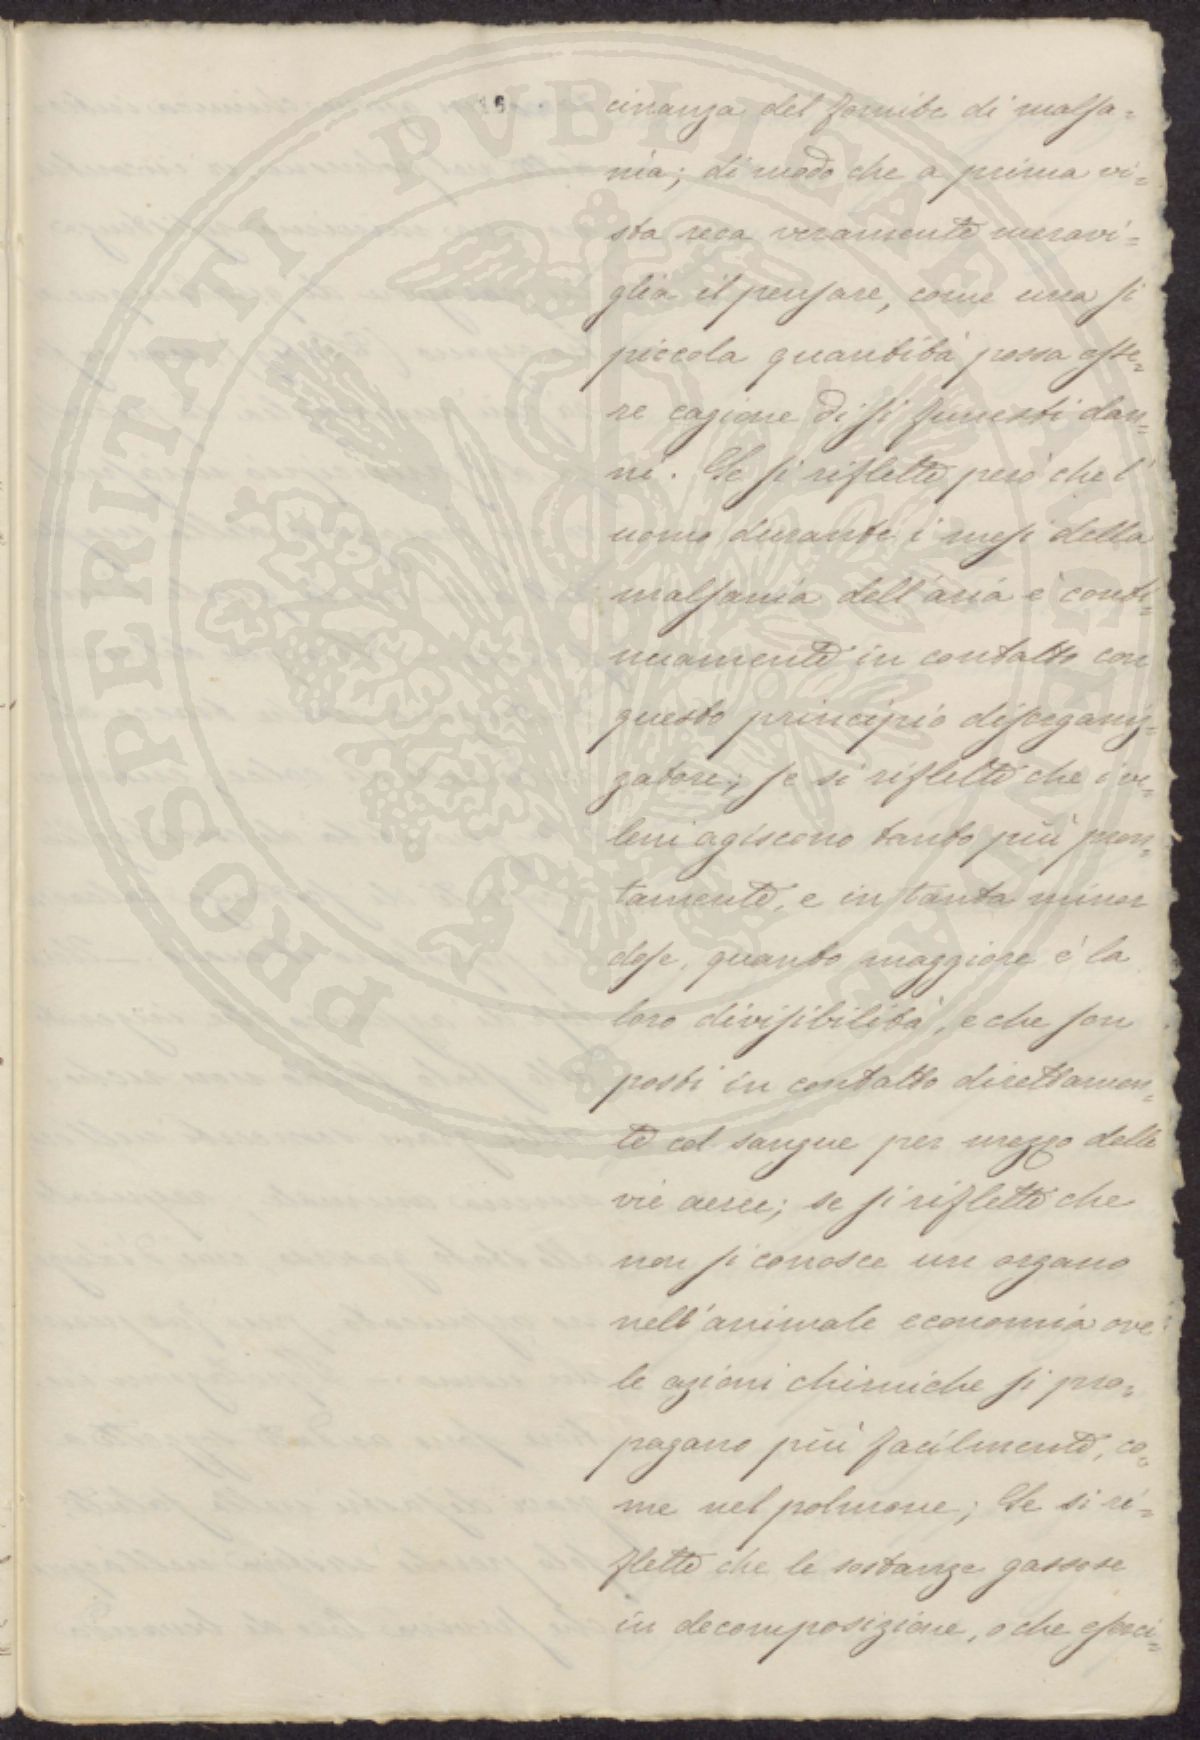 16
PROSPERITATI PVBLICAE AVGENDAE
cinanza del fomite di malsa=
nia; di modo che a prima vi=
sta reca veramente meravi=
glia il pensare, come una si
piccola quantità possa esse=
re cagione di si funesti dan=
ni. Se si riflette però che l'
uomo durante i mesi della
malsania dell'aria è conti=
nuamente in contatto con
questo principio disorganiz=
zatore; se si riflette che i ve=
leni agiscono tanto più pron=
tamente, e in tanta minor
dose, quanto maggiore è la
loro divisibilità, e che son
posti in contatto direttamen=
te col sangue per mezzo delle
vie aeree; se si riflette che
non si conosce un organo
nell'animale economia ove
le azioni chimiche si pro=
pagano più facilmente, co=
me nel polmone; Se si ri=
flette che le sostanze gassose
in decomposizione, o che eserci=